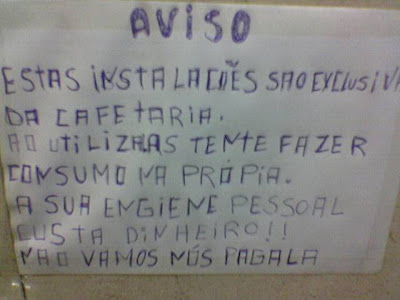 AVISO
ESTAS INSTALACÕES SAO EXCLUSIVA
DA CAFETARIA.
AO UTILIZAAS TENTE FAZER
CONSUMO NA PRÓPIA.
A SUA ENGIENE PESSOAL
CUSTA DINHEIRO!!
NÃO VAMOS NÓS PAGALA